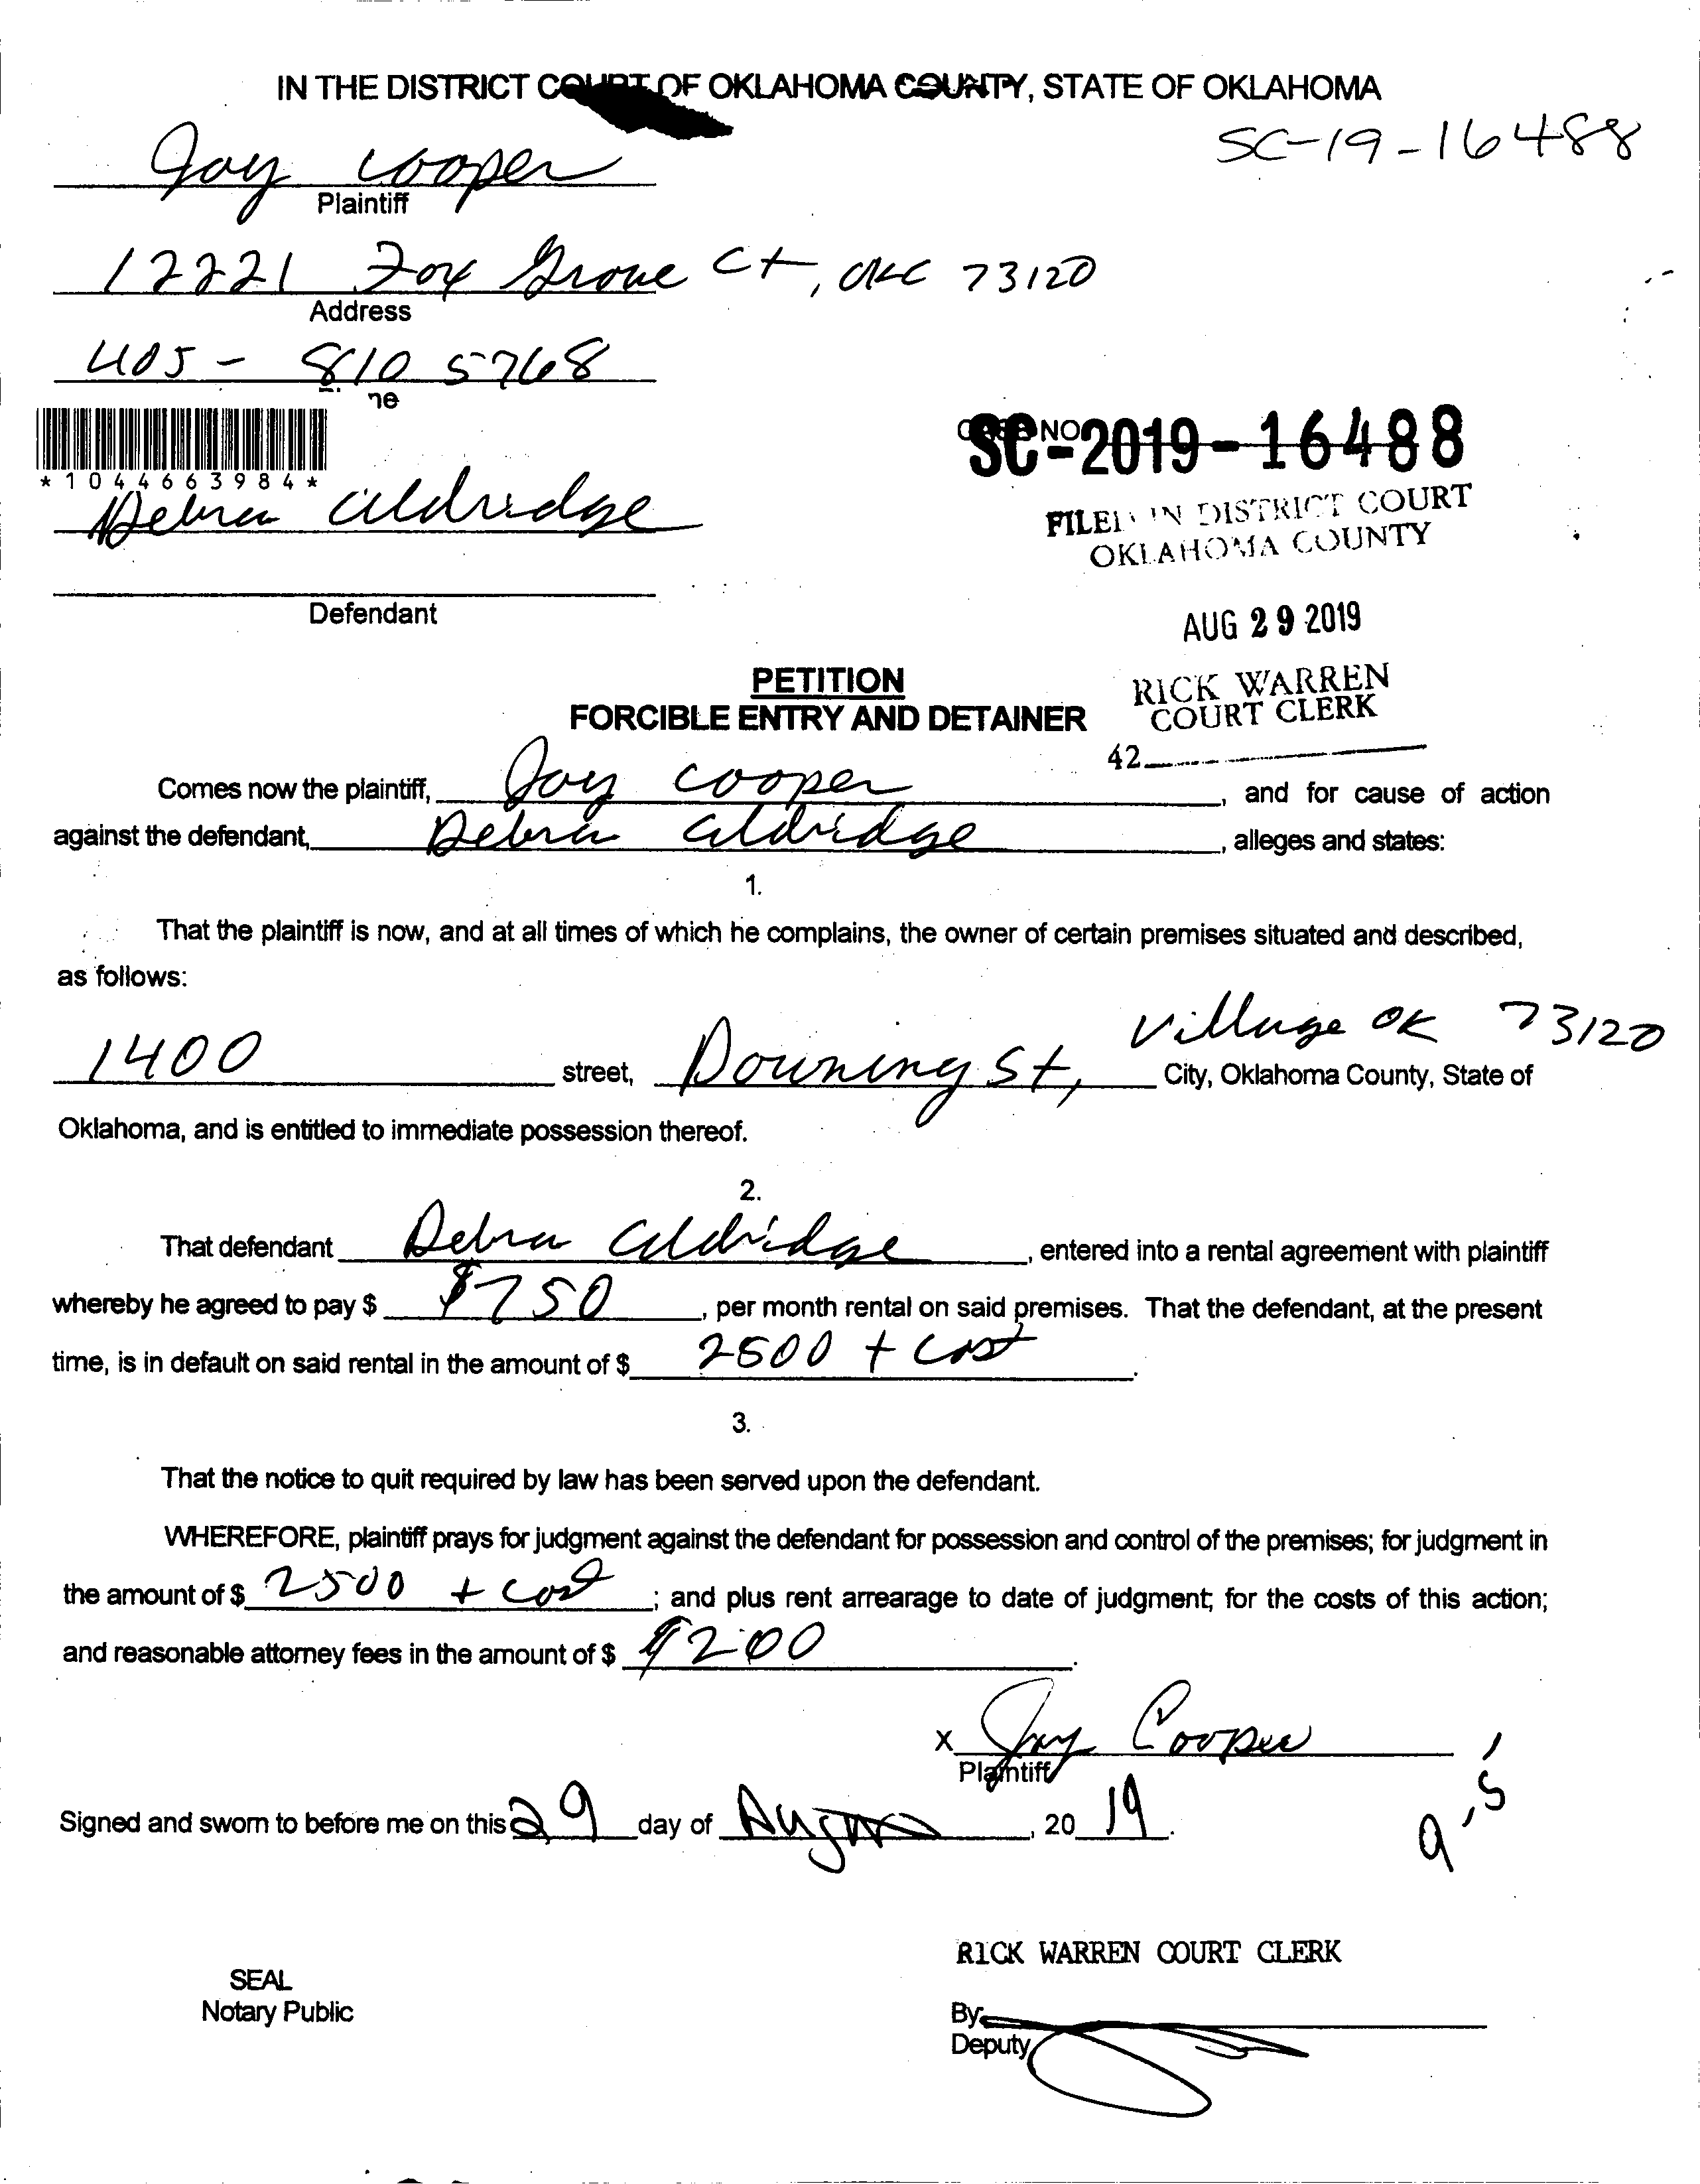 IN THE DISTRICT COURT OF OKLAHOMA COUNTY, STATE OF OKLAHOMA
SC-19-16488
Joy Cooper
Plaintiff
12221 Fox Grove Ct, OKC 73120
Address
405-810 5768
ne
*1044663984*
SC-2019-16488
NO
Debra Aldridge
FILED IN DISTRICT COURT
OKLAHOMA COUNTY
Defendant
AUG 29 2019
PETITION
FORCIBLE ENTRY AND DETAINER
RICK WARREN
COURT CLERK
42
Comes now the plaintiff, Joy Cooper, and for cause of action
against the defendant, Debra Aldridge, alleges and states:
1.
That the plaintiff is now, and at all times of which he complains, the owner of certain premises situated and described,
as follows:
Village OK 73120
1400 street, Downing St, City, Oklahoma County, State of
Oklahoma, and is entitled to immediate possession thereof.
2.
That defendant Debra Aldridge, entered into a rental agreement with plaintiff
whereby he agreed to pay $ $750, per month rental on said premises. That the defendant, at the present
time, is in default on said rental in the amount of $ 2500 + cost.
3.
That the notice to quit required by law has been served upon the defendant.
WHEREFORE, plaintiff prays for judgment against the defendant for possession and control of the premises; for judgment in
the amount of $ 2500 + cost; and plus rent arrearage to date of judgment; for the costs of this action;
and reasonable attorney fees in the amount of $ $200.
X Joy Cooper
Plaintiff
Signed and sworn to before me on this 29 day of August, 2019.
RICK WARREN COURT CLERK
SEAL
Notary Public
By
Deputy